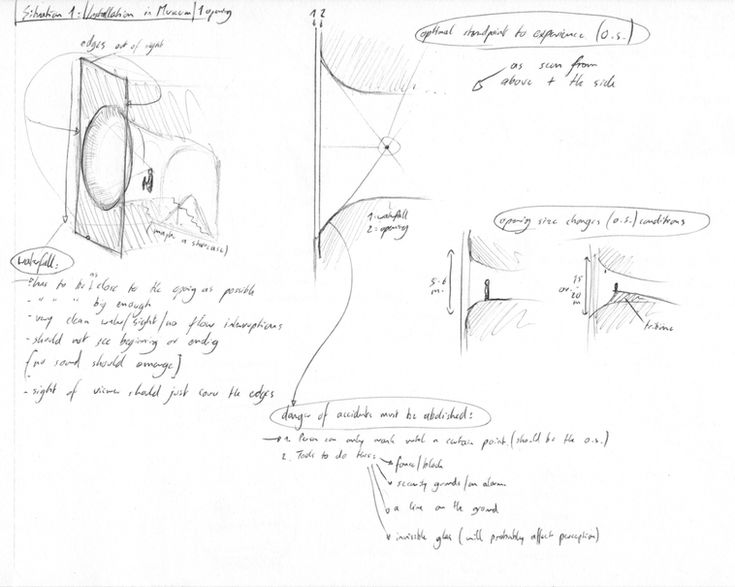 Situation 1: Installation in Museum/1 opening
edges out of sight
(maybe a staircase)
waterfall:
- has to be as close to the opening as possible
- " " " big enough
- very clean water/sight/no flow interuptions
- should not see beginning or ending
[no sound should emerge]
- sight of viewer should just cover the edges
1 2
optimal standpoint to experience (o.s.)
as seen from
above + the side
1: waterfall
2: opening
opening size changes (o.s.) conditions
5-6
m.
15
or
20
m
danger of accidents must be abolished:
1. Person can only walk until a certain point. (should be the o.s.)
2. Tools to do this:
fence/block
security guards/an alarm
a line on the ground
invisible glas (will probably affect perception)